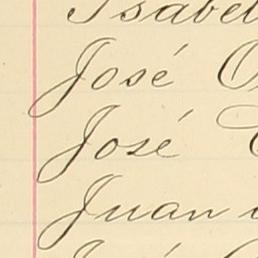 Isabel
José
José
Juan